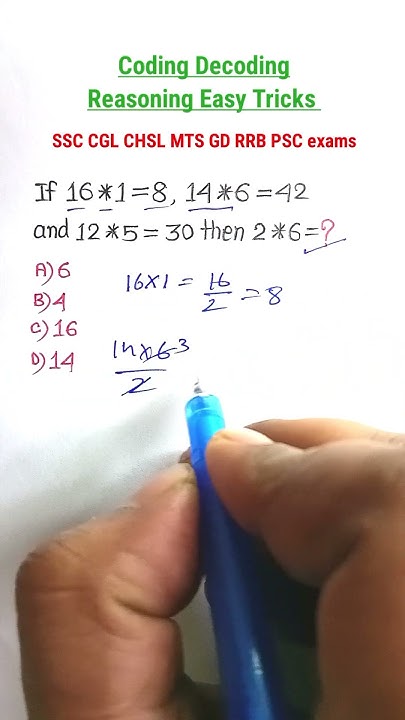 Coding Decoding
Reasoning Easy Tricks
SSC CGL CHSL MTS GD RRB PSC exams
If 16*1=8, 14*6=42
and 12*5=30 then 2*6=?
A) 6
B) 4
C) 16
D) 14
16×1 = 16/2 = 8
14×6 3
2